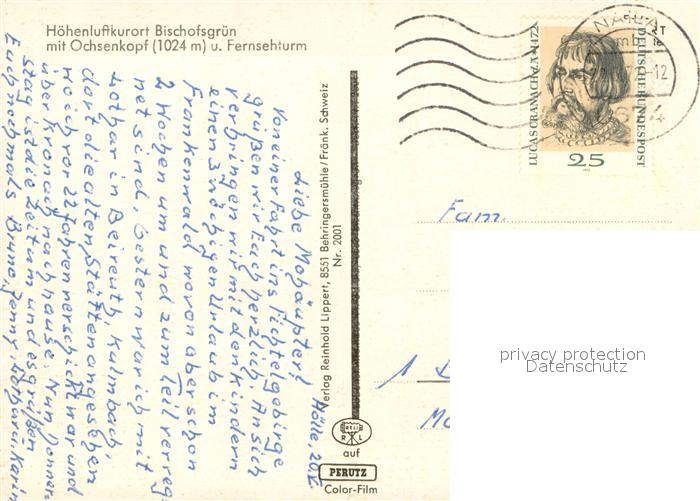 Höhenluftkurort Bischofsgrün
mit Ochsenkopf (1024 m) u. Fernsehturm
Hölle, 20.
Liebe Mohäupter!
Von einer Fahrt ins Fichtelgebirge
grüßen wir Euch herzlich. An sich
verbringen wir mit den Kindern
einen 3 wöchigen Urlaub im
Frankenwald wovon aber schon
2 Wochen um und zum Teil verreg-
net sind. Gestern war ich mit
Lothar in Beireuth, Kulmbach,
dort die alten Stätten angesehen
wo ich vor 22 Jahren verschickt war und
über Kronach nach hause. Nun Donner-
stag ist die Zeit um und es grüßen
Euch nochmals Bruno, Jenny Lothar u. Karin
Verlag Reinhold Lippert, 8551 Behringersmühle/Fränk. Schweiz
Nr. 2001
RELI
R L
auf
PERUTZ
Color-Film
LUCAS CRANACH 1472-1972
DEUTSCHE BUNDESPOST
25
NAILA
12
Fam.
1
privacy protection
Datenschutz